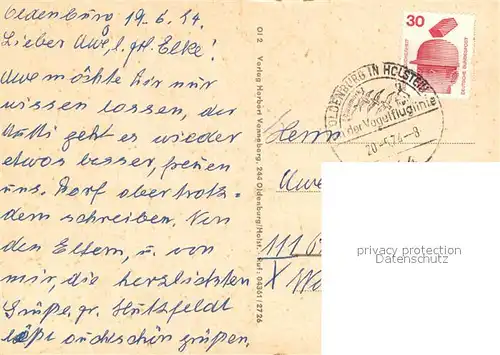 Oldenburg 19.6.74.
Lieber Uwe, l. gr. Elke!
Uwe möchte dir nur
wissen lassen, der
Mutti geht es wieder
etwas besser, freuen
uns. Darf aber trotz-
dem schreiben. Von
den Eltern, u. von
mir, die herzlichsten
Grüße, gr. Hutzfeldt
läßt auch schön grüßen.
Ol 2 Verlag Herbert Vanneberg, 244 Oldenburg/Holst. Ruf: 04361/2726
30
DEUTSCHE BUNDESPOST
OLDENBURG IN HOLSTEIN
der Vogelfluglinie
20.-6.74.-8
Herrn
Uwe
111
privacy protection
Datenschutz